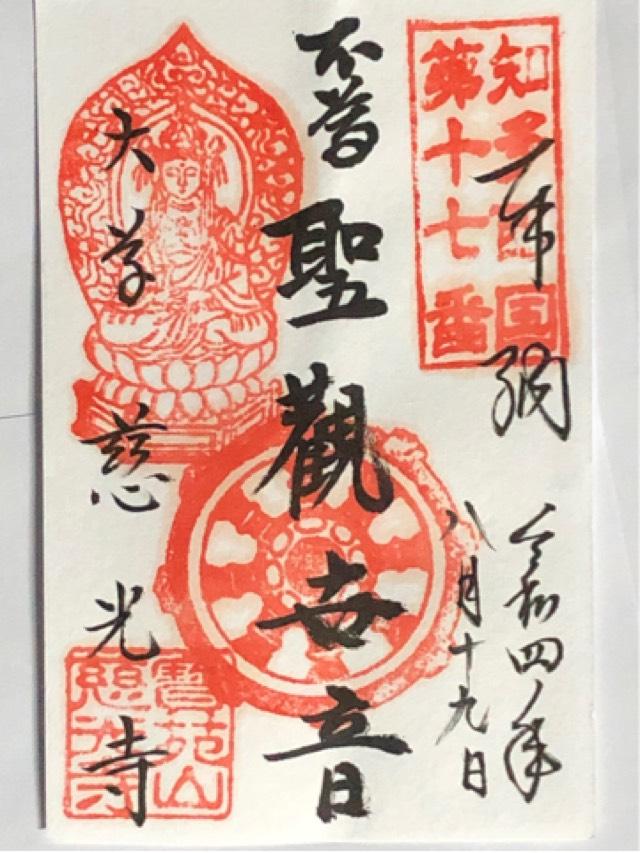 知多四国
第十七番
令和四年
八月十九日
聖觀世音
大草 慈光寺
慈光寺